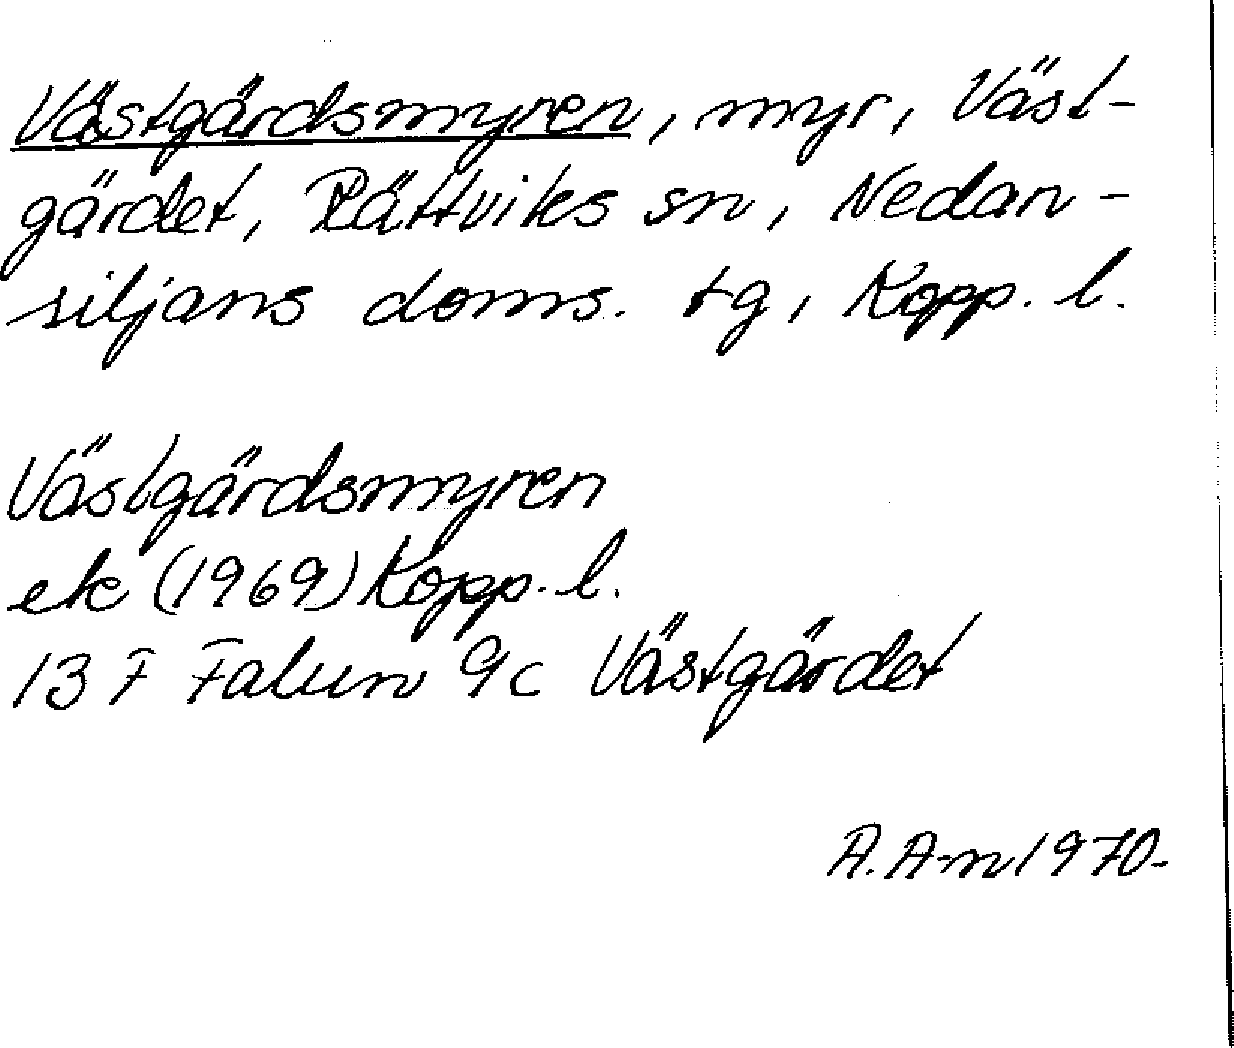 Västgärdsmyren, myr, Väst-
gärdet, Rättviks sn, Nedan-
siljans doms. tg, Kopp. l.
Västgärdsmyren
ek (1969) Kopp. l.
13 F Falun 9c Västgärdet
A. A-n 1970-